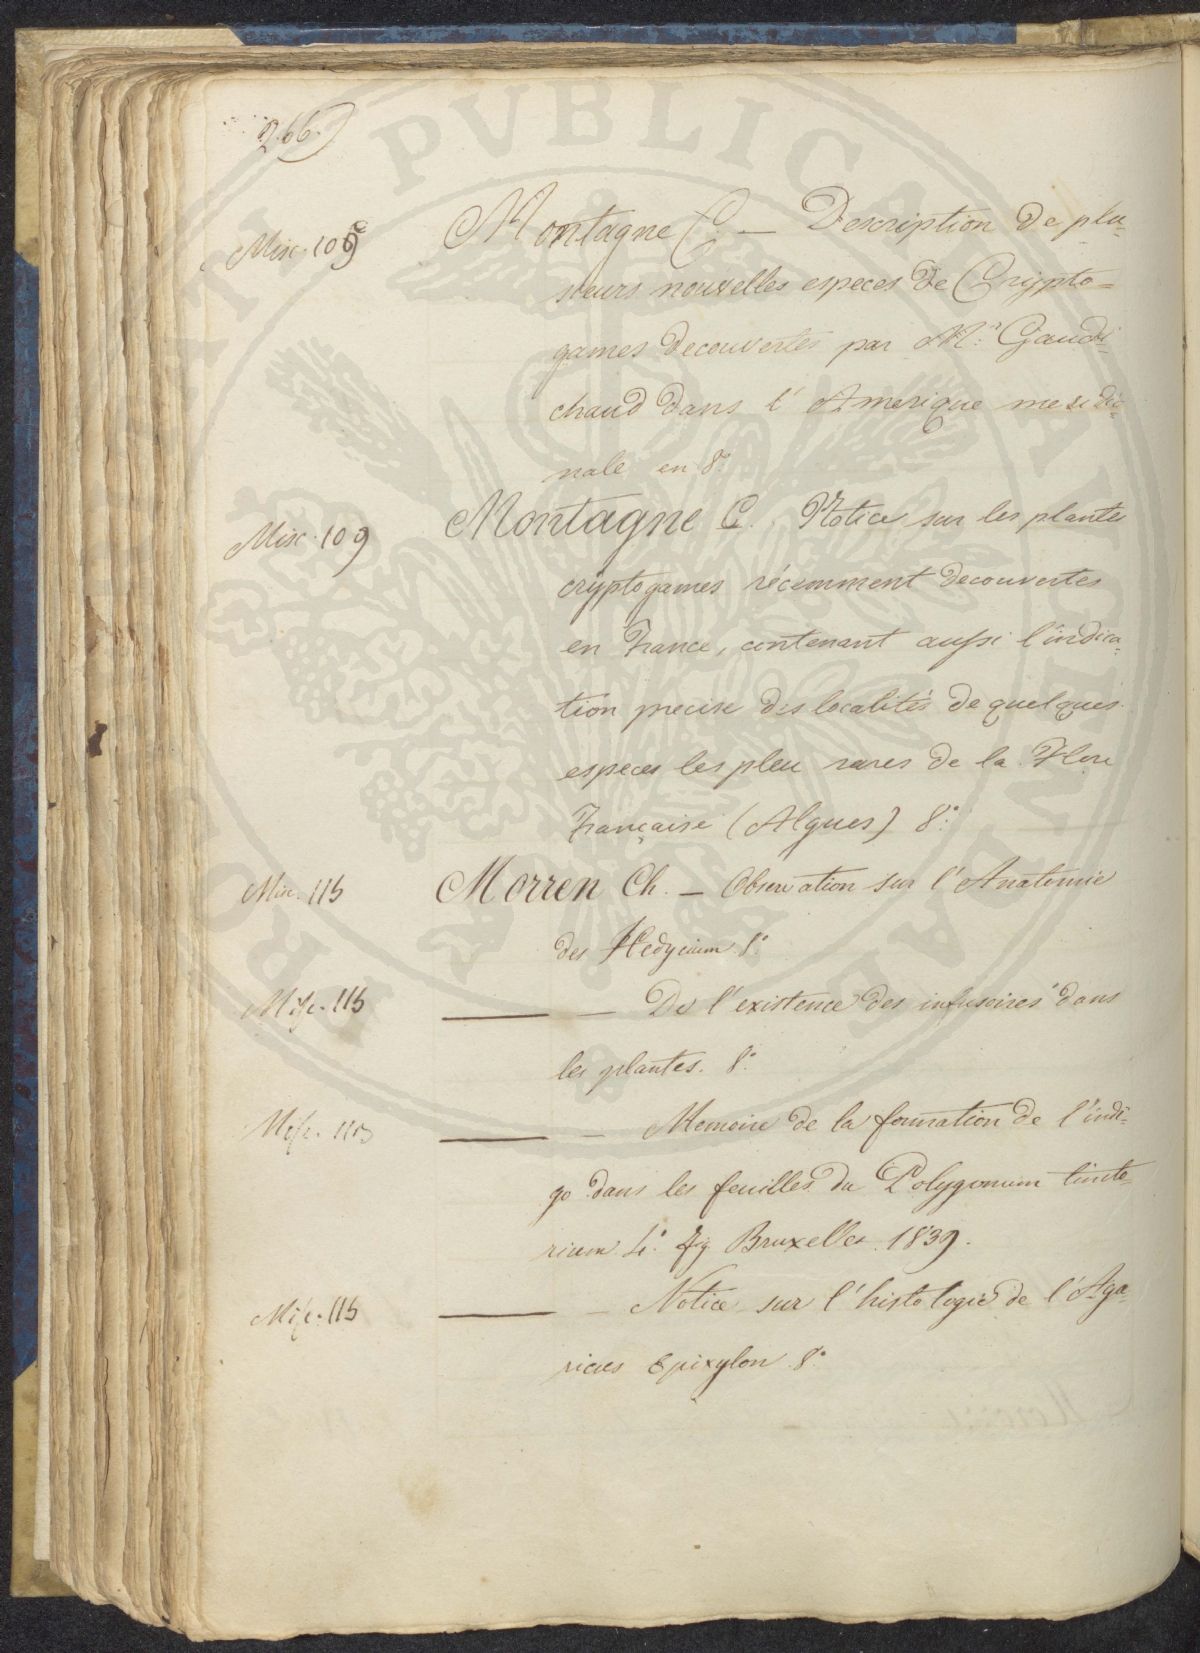 266.
Misc. 109 Montagne C. — Description de plu-
sieurs nouvelles especes de Crypto=
games decouvertes par Mr. Gaudi-
chaud dans l' Amerique meridio-
nale en 8°
Misc. 109 Montagne C. Notice sur les plantes
cryptogames récemment decouvertes
en France, contenant aussi l'indica-
tion precise des localités de quelques
especes les pleu rares de la Flore
Française (Algues) 8°.
Misc. 115 Morren Ch. — Observation sur l'Anatomie
des Hedycium 8°.
Misc. 115 — De l'existence des infusoires dans
les plantes. 8°.
Misc. 115 — Memoire de la formation de l'indi-
go dans les feuilles du Polygonum tincto-
rium 4°. fig Bruxelles 1839.
Misc. 115 — Notice sur l'histologie de l'Aga-
ricus epixylon 8°.